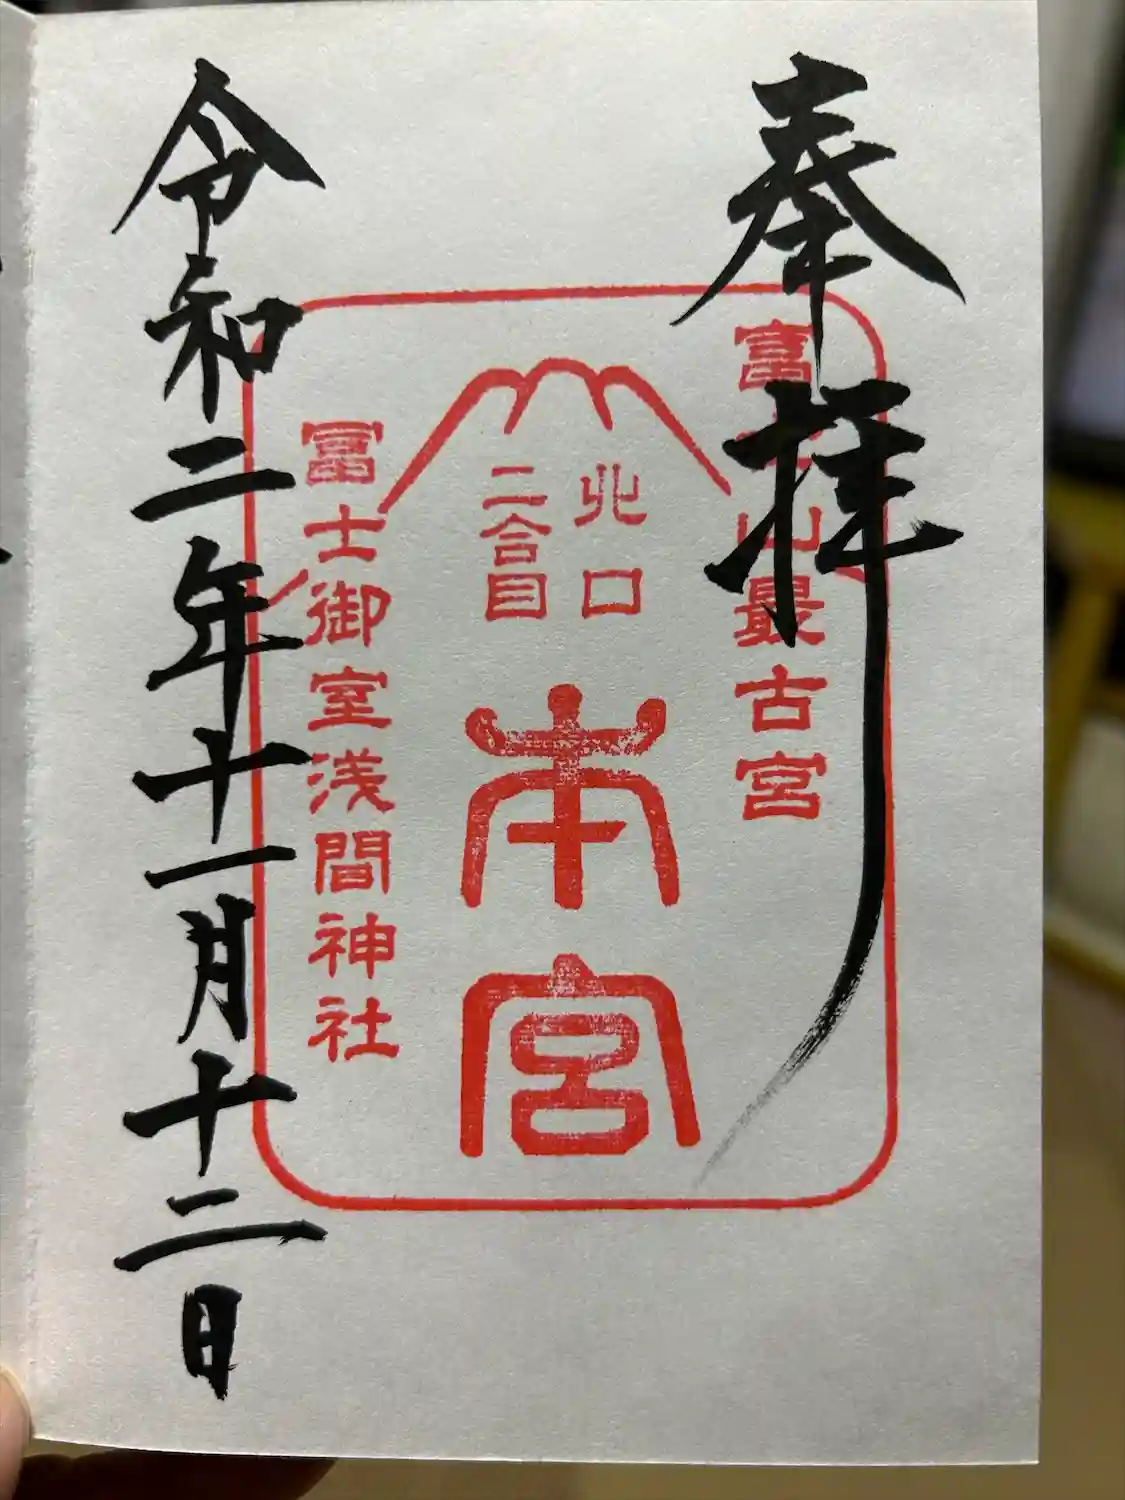 奉拝
富士山最古宮
北口
二合目
本宮
冨士御室浅間神社
令和二年十一月十二日